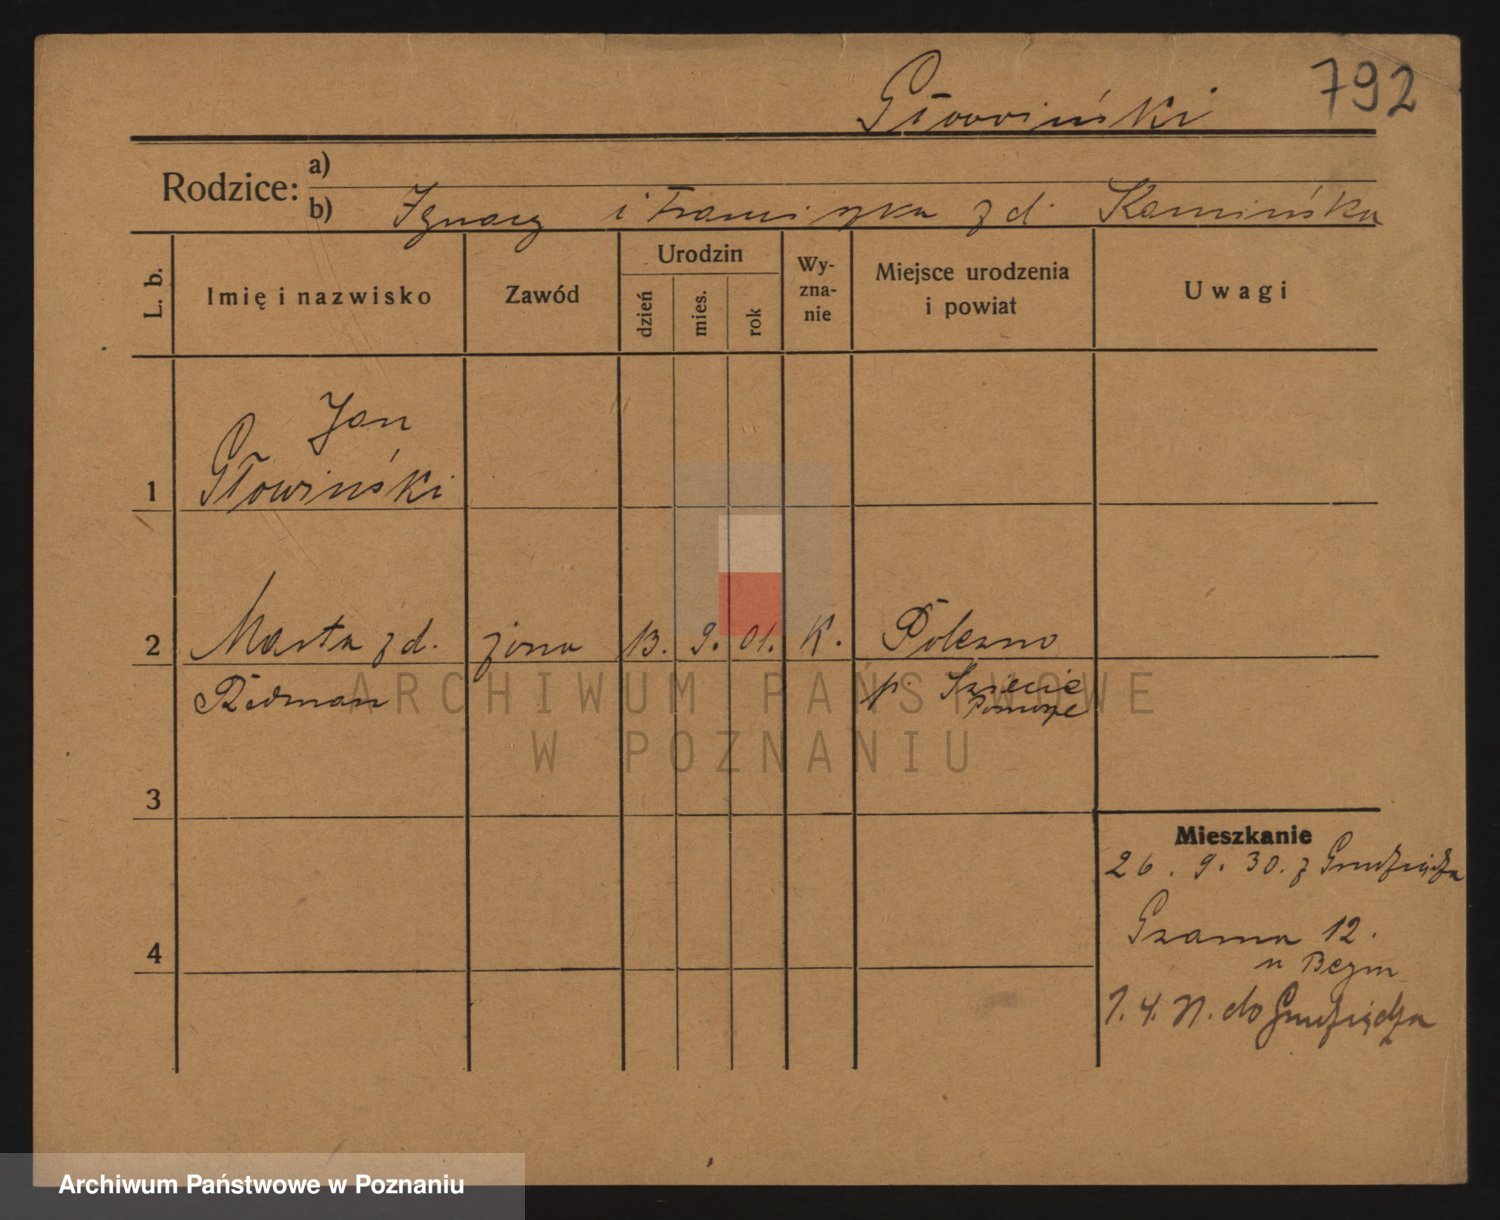 792
Głowiński
Rodzice: a)
b) Ignacy i Franciszka z d. Kamińska
L. b.
Imię i nazwisko
Zawód
Urodzin
dzień
mies.
rok
Wy-
zna-
nie
Miejsce urodzenia
i powiat
Uwagi
Jan
1 Głowiński
2 Marta z d. żona 13. 9. 01. K. Polczno
Redman p.
Pomorze
3
Mieszkanie
26. 9. 30. z Grudziądza
12.
4
do Grudziądza
ARCHIWUM PAŃSTWOWE
W POZNANIU
Archiwum Państwowe w Poznaniu